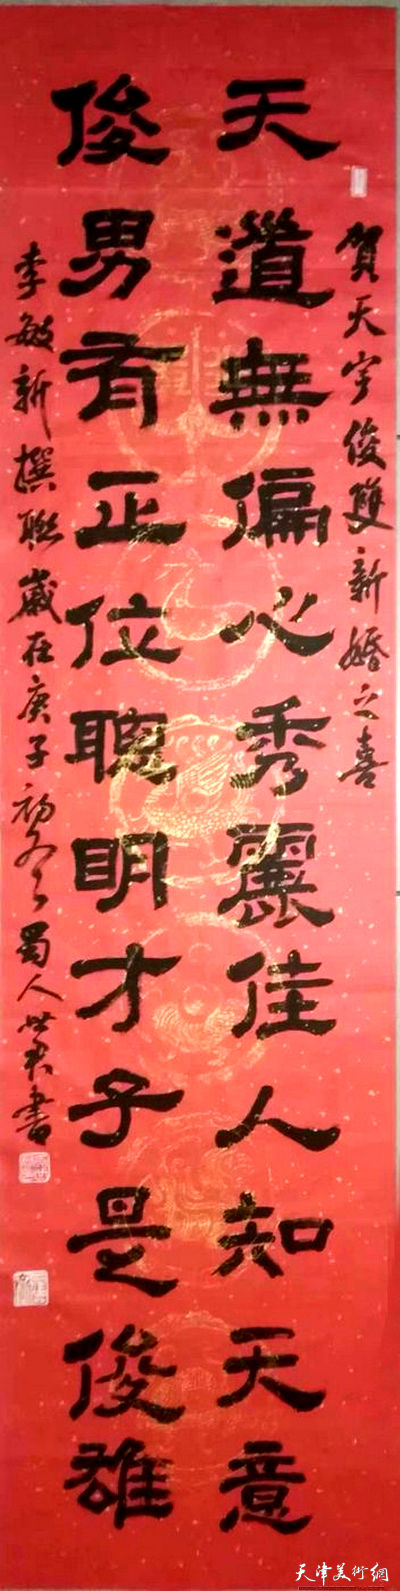 賀天宇俊雙新婚之喜
天道無偏心秀麗佳人知天意
俊男有正位聰明才子是俊雄
李敏新撰聯歲在庚子初冬蜀人世君書
天津美術網